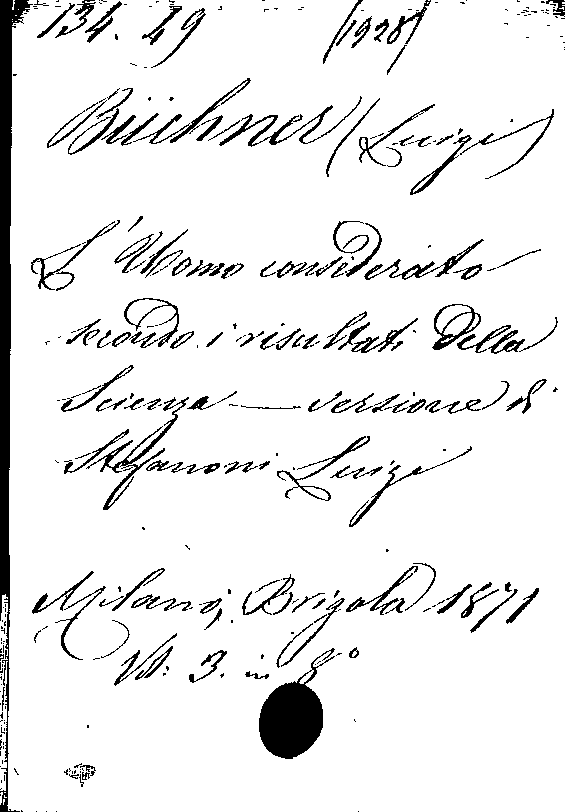 134. 49 (1928)
Büchner (Luigi)
L'Uomo considerato
secondo i risultati della
Scienza — versione di
Stefanoni Luigi
Milano, Brigola 1871
Vol: 3. in 8°